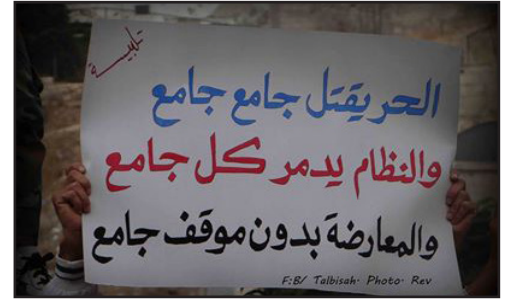 تلبيسة
الحر يقتل جامع جامع
والنظام يدمر كل جامع
والمعارضة بدون موقف جامع
F:B/ Talbisah· Photo· Rev